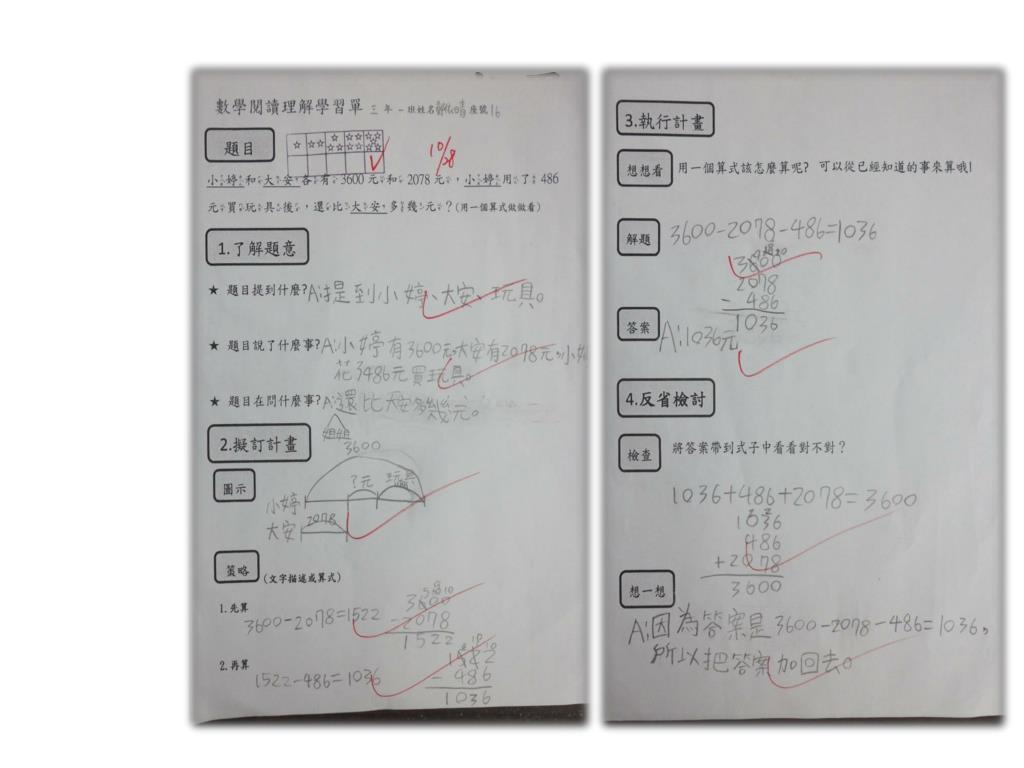 數學閱讀理解學習單 三 年 一 班姓名 座號16
題目
10/28
小婷和大安各有3600元和2078元,小婷用了486
元買玩具後,還比大安多幾元?(用一個算式做做看)
1.了解題意
★ 題目提到什麼?A:提到小婷、大安、玩具。
★ 題目說了什麼事?A:小婷有3600元,大安有2078元,小婷
花3486元買玩具。
★ 題目在問什麼事?A:還比大安多幾元。
姐姐
2.擬訂計畫
3600
圖示
?元 玩具
小婷
大安 2078
策略 (文字描述或算式)
1.先算
3600-2078=1522
3600
-2078
1522
2.再算
1522-486=1036
1522
- 486
1036
3.執行計畫
想想看 用一個算式該怎麼算呢? 可以從已經知道的事來算哦!
解題 3600-2078-486=1036
3600
2078
- 486
1036
答案 A:1036元
4.反省檢討
檢查 將答案帶到式子中看看對不對?
1036+486+2078=3600
1036
486
+2078
3600
想一想
A:因為答案是3600-2078-486=1036,
所以把答案加回去。